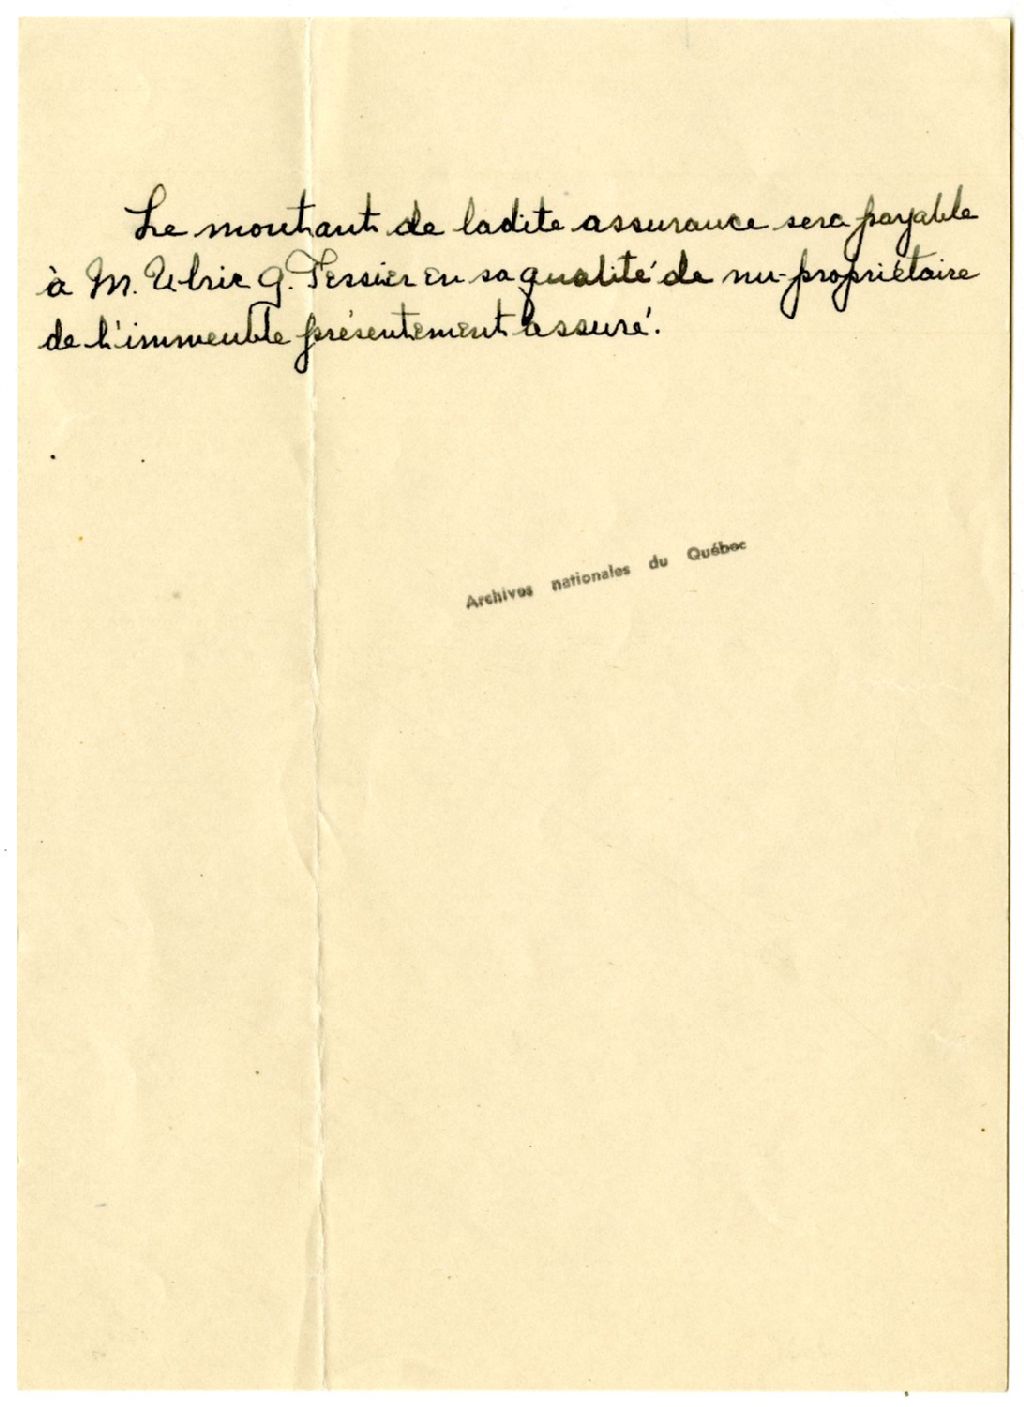 Le montant de ladite assurance sera payable
à M. Ulric G. Tessier en sa qualité de nu-propriétaire
de l'immeuble présentement assuré.
Archives nationales du Québec